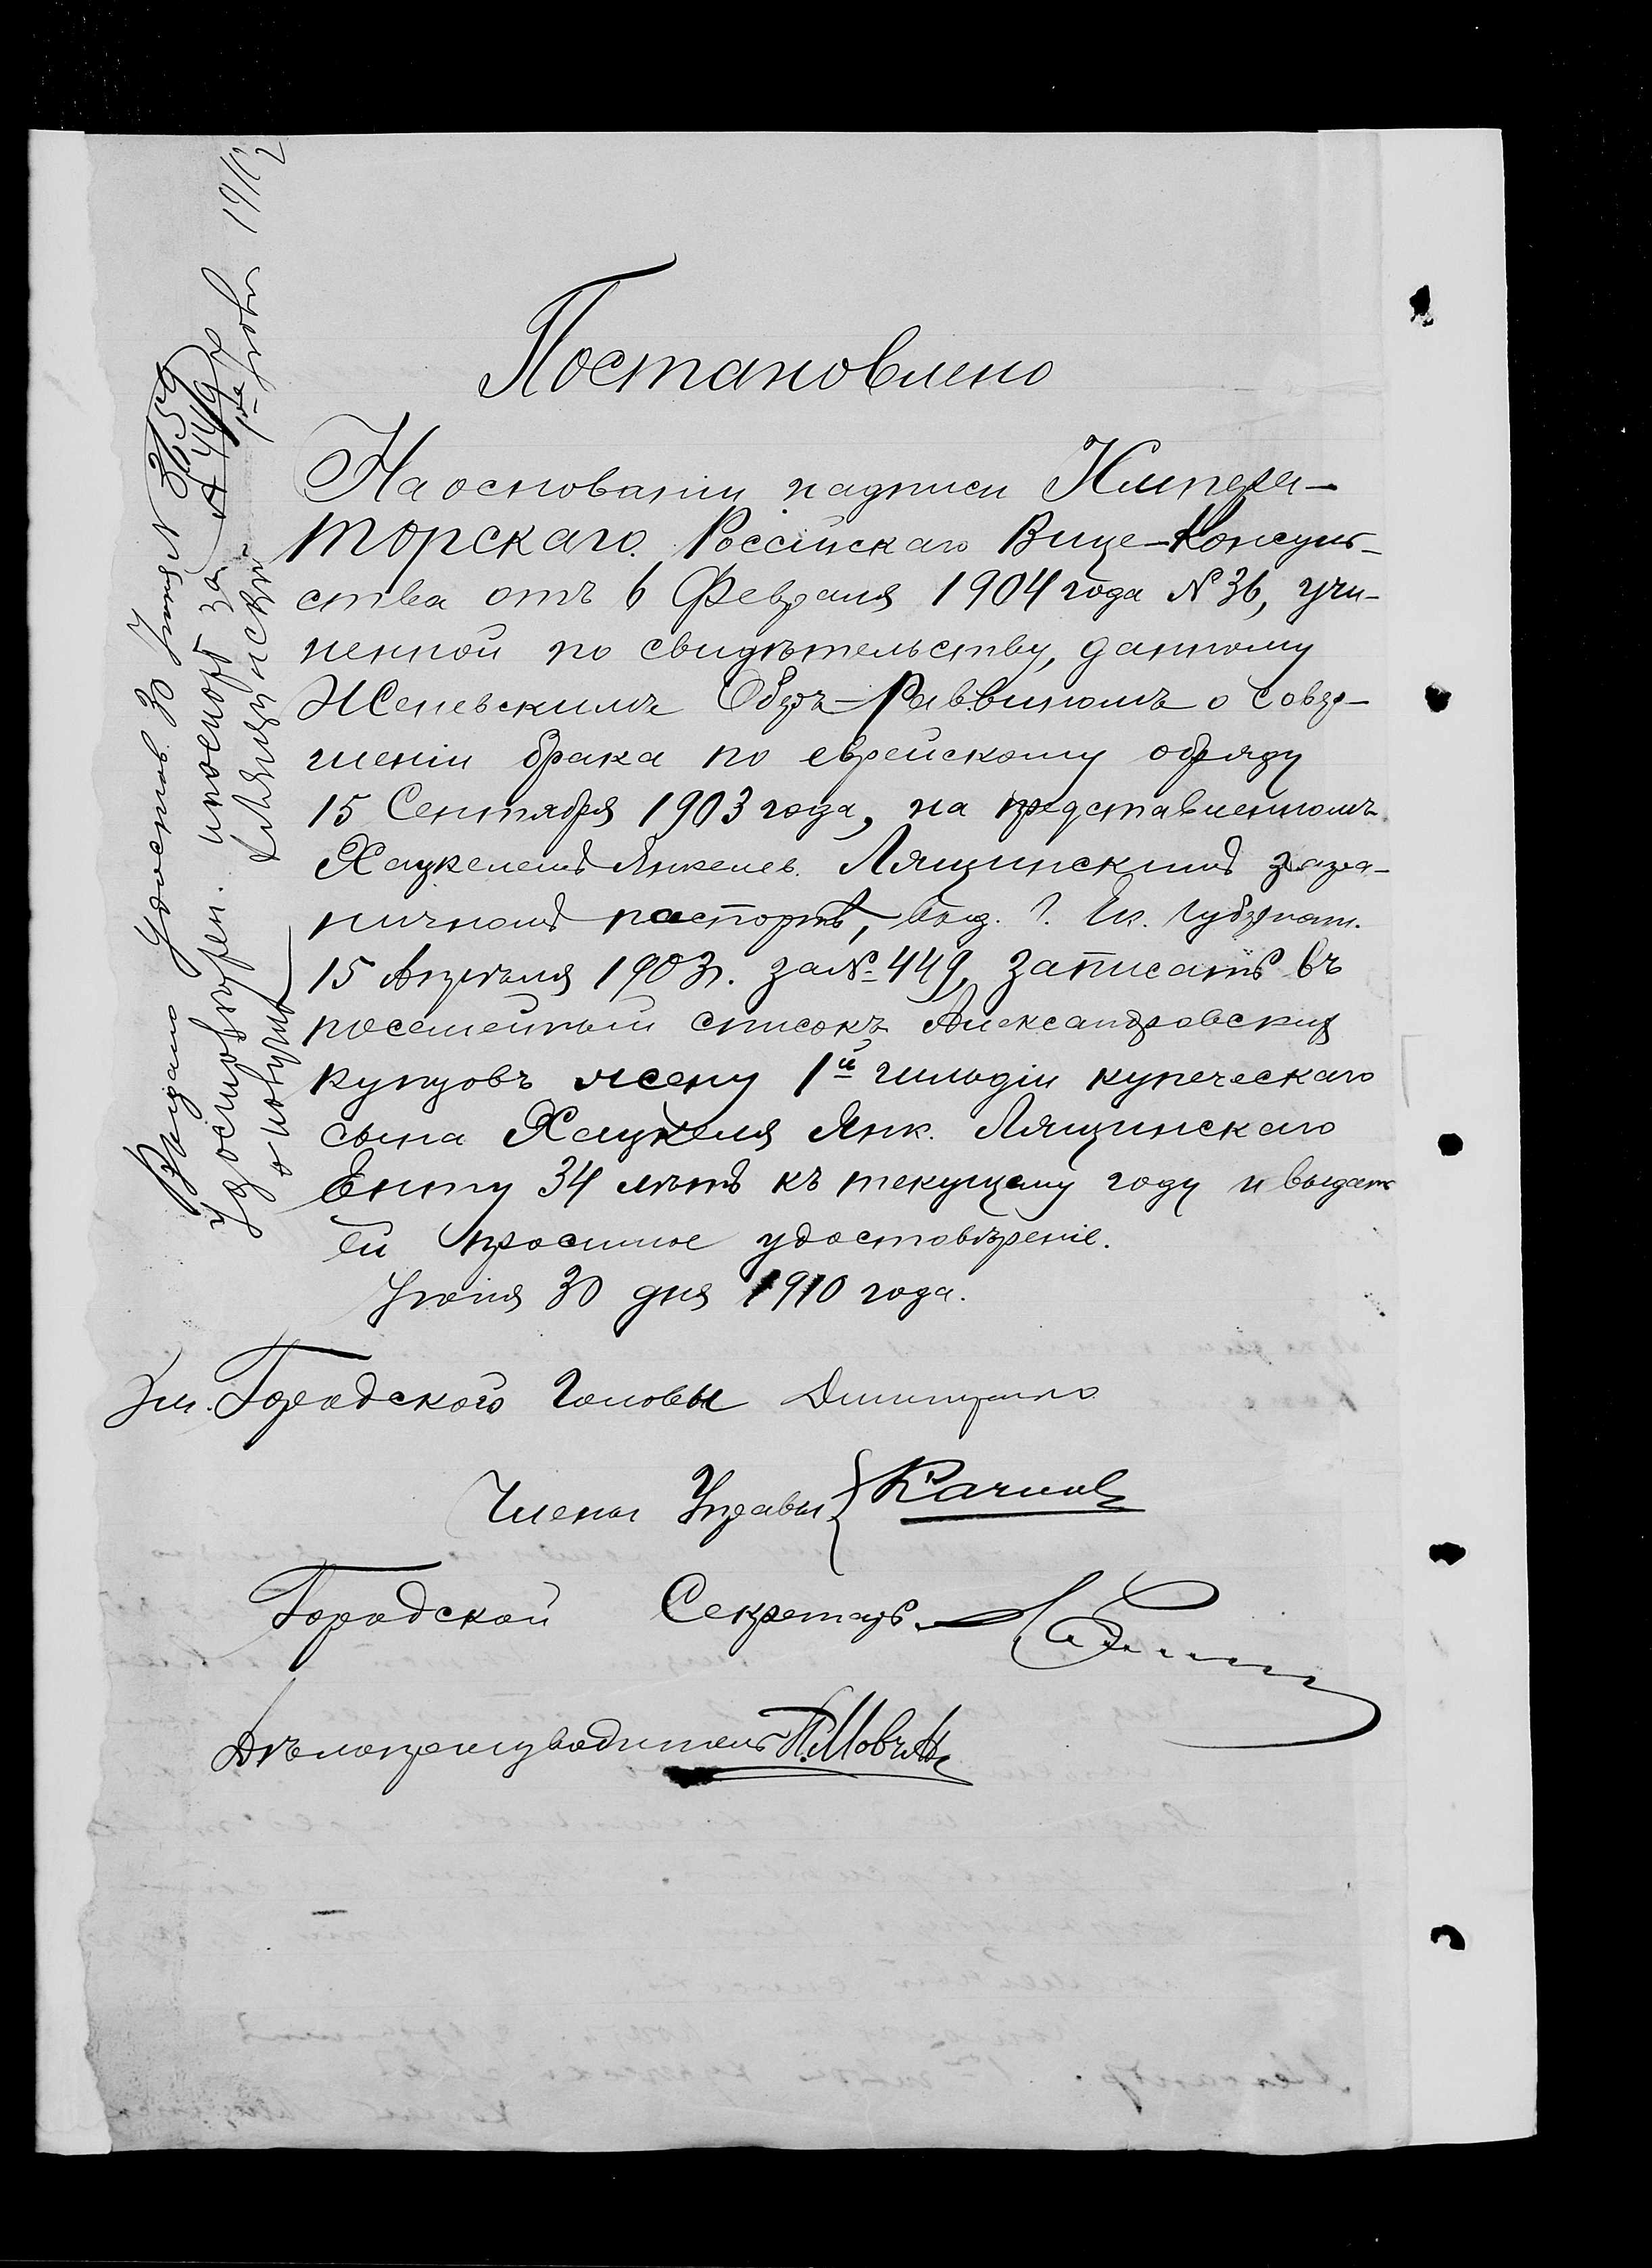 Постановлено
На основаніи надписи Импера-
торскаго Россійскаго Вице-Консуль-
ства отъ 6 Февраля 1904 года № 36, учи-
ненной по свидѣтельству, данному
Женевскимъ Оберъ-Раввиномъ о совер-
шеніи брака по еврейскому обряду
15 Сентября 1903 года, на представленномъ
Хацкелемъ Янкелев. Лящинскимъ загра-
ничномъ паспортѣ, выд. Г. Ек. Губернат.
15 Апрѣля 1903 г. за № 449, записать въ
посемейный списокъ Александровскихъ
купцовъ жену 1й гильдіи купеческаго
сына Хацкеля Янк. Лящинскаго
Енту 34 лѣтъ къ текущему году и выдать
ей просимое удостовѣреніе.
Іюня 30 дня 1910 года.
За Городского Головы
Члены Управы
Городской Секретарь
Дѣлопроизводитель П. Мовчан
Выдано удостов. 30 Іюня № 3159
удостовѣрен. и паспорт за № 449
получилъ Х Лящинскій
1910